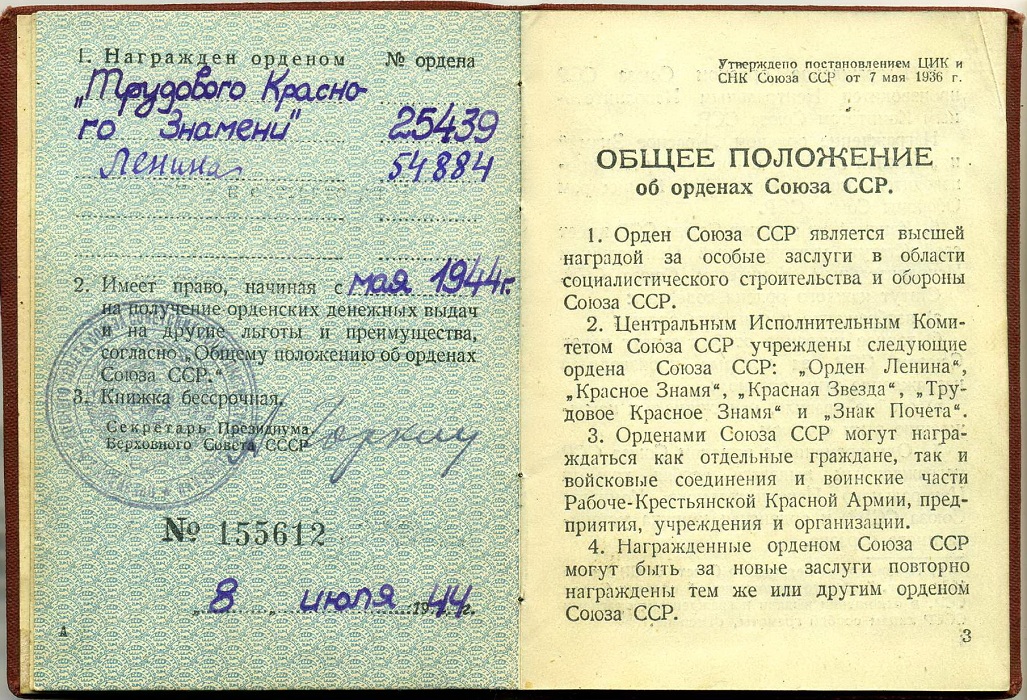 1. Награжден орденом № ордена
„Трудового Красно-
го Знамени" 25439
Ленина 54884
2. Имеет право, начиная с мая 1944г.
на получение орденских денежных выдач
и на другие льготы и преимущества,
согласно „Общему положению об орденах
Союза ССР."
3. Книжка бессрочная.
Секретарь Президиума
Верховного Совета СССР
№ 155612
„ 8 „ июля 1944 г.
А
Утверждено постановлением ЦИК и
СНК Союза ССР от 7 мая 1936 г.
ОБЩЕЕ ПОЛОЖЕНИЕ
об орденах Союза ССР.
1. Орден Союза ССР является высшей
наградой за особые заслуги в области
социалистического строительства и обороны
Союза ССР.
2. Центральным Исполнительным Коми-
тетом Союза ССР учреждены следующие
ордена Союза ССР: „Орден Ленина“,
„Красное Знамя“, „Красная Звезда“, „Тру-
довое Красное Знамя“ и „Знак Почета“.
3. Орденами Союза ССР могут награ-
ждаться как отдельные граждане, так и
войсковые соединения и воинские части
Рабоче-Крестьянской Красной Армии, пред-
приятия, учреждения и организации.
4. Награжденные орденом Союза ССР
могут быть за новые заслуги повторно
награждены тем же или другим орденом
Союза ССР.
3